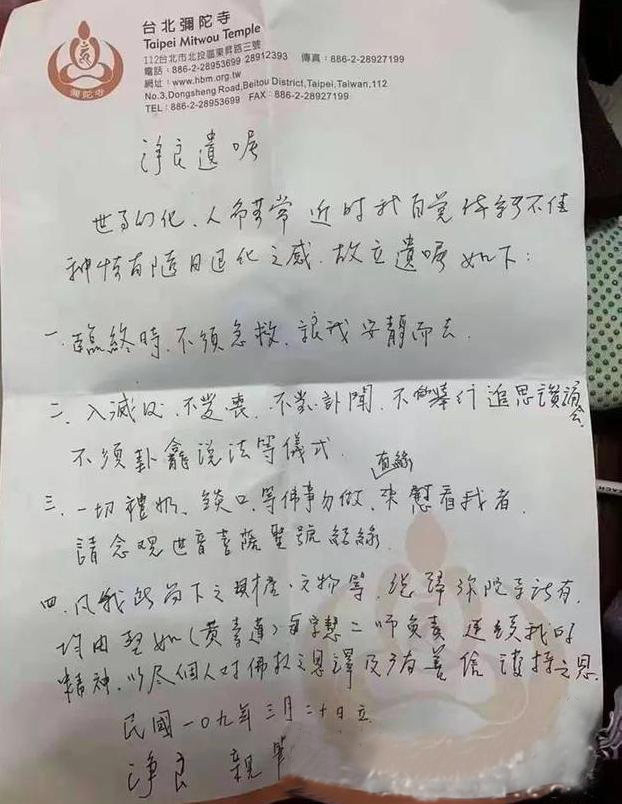 台北彌陀寺
Taipei Mitwou Temple
112台北市北投區東昇路三號
電話：886-2-28953699 28912393 傳真：886-2-28927199
網址：www.hbm.org.tw
No.3,Dongsheng Road,Beitou District,Taipei,Taiwan,112
TEL：886-2-28953699 FAX：886-2-28927199
彌陀寺
淨良遺囑
世事幻化、人命無常 近時我自覺體氣不佳
神情有隨日退化之感．故立遺囑如下：
一．臨終時．不須急救．讓我安靜而去．
二．入滅後．不發喪．不發訃聞．不舉行追思讚頌會
不須封龕說法等儀式．
三．一切禮懺、燄口等佛事勿做．來慰看我者．
有緣
請念觀世音菩薩聖號結緣．
四．凡我所留下之文物等．總歸彌陀寺所有．
均由聖如（黃）二師負責 延續我的
精神．以盡個人對佛教之恩澤及所有善信護持之恩
民國一〇九年三月二十日立
淨良 親筆